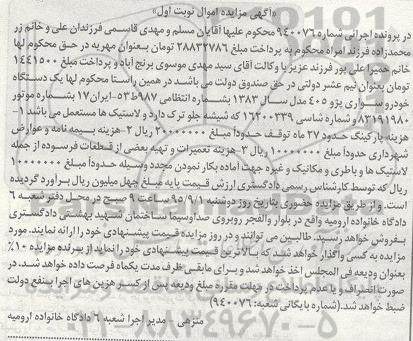 «آگهی مزایده اموال نوبت اول»
در پرونده اجرائی شماره ۹۴۰۰۷۶ محکوم علیها آقایان مسلم و مهدی قاسمی فرزندان علی و خانم زر
محمدزاده فرزند امراه محکوم به پرداخت مبلغ ۲۸۸۳۲۷۸۶ تومان بعنوان مهریه در حق محکوم لها
خانم حمیرا علی پور فرزند عزیز با وکالت آقای سید مهدی موسوی برنج آباد و پرداخت مبلغ ۱۴۴۱۵۰۰
تومان بعنوان نیم عشر دولتی در حق صندوق دولت می باشد در همین راستا محکوم لها یک دستگاه
خودرو سواری پژو ۴۰۵ مدل سال ۱۳۸۳ بشماره انتظامی ۹۸۷ط۵۳-ایران ۱۷ بشماره موتور
۸۳۱۹۱۹۸۰ و شماره شاسی ۱۶۲۰۰۳۳۹ که شیشه جلو ترک دارد و لاستیک ها مستعمل می باشد ۱-
هزینه پارکینگ حدوداً ۲۷ ماه توقف حدوداً مبلغ ۲۰۰۰۰۰۰۰ ریال ۲-هزینه بیمه نامه و عوارض
شهرداری حدوداً مبلغ ۱۰۰۰۰۰۰۰ ریال ۳- هزینه تعمیرات و تهیه بعضی از قطعات فرسوده از جمله
لاستیک ها و باطری و مکانیک و غیره جهت آماده بکار نمودن مجدد وسیله حدوداً مبلغ ۱۰۰۰۰۰۰۰
ریال که توسط کارشناس رسمی دادگستری ارزش قیمت پایه مبلغ چهل میلیون ریال برآورد گردیده
است. و از طریق مزایده حضوری بتاریخ روز دوشنبه ۹۵/۹/۱ ساعت ۹ صبح در محل دفتر شعبه ۶
دادگاه خانواده ارومیه واقع در بلوار والفجر روبروی صداوسیما ساختمان شهید بهشتی دادگستری
بفروش خواهد رسید. طالبین می توانند و در روز مزایده قیمت پیشنهادی خود را ارائه نمایند. مورد
مزایده به کسی واگذار خواهد شد که بالاترین قیمت پیشنهادی خود را نماید از برنده مزایده ۱۰٪
بعنوان ودیعه فی المجلس اخذ خواهد شد و برای مابقی ظرف مدت یکماه فرصت داده خواهد شد. در
صورت انصراف و یا عدم پرداخت در مهلت مقرره مبلغ ودیعه پس از کسر هزین های اجرا بنفع دولت
ضبط خواهد شد.(شماره بایگانی شعبه: ۹۴۰۰۷۶)
منزهی - مدیر اجرا شعبه ۶ دادگاه خانواده ارومیه
۰۲۱-۸۸۳۴۹۶۷۰-۵